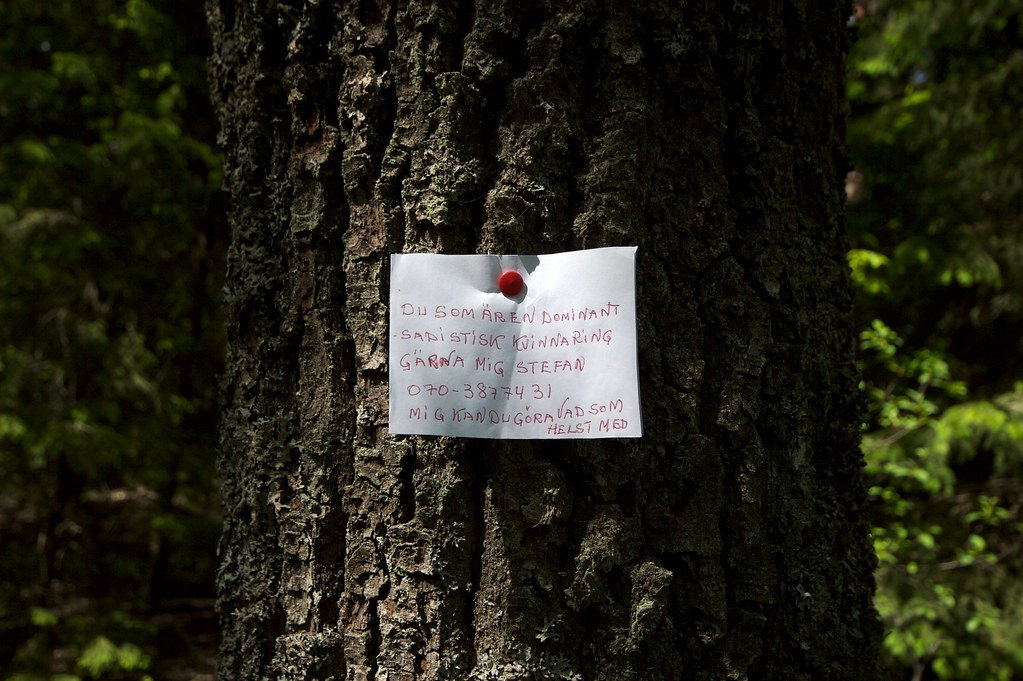 DU SOM ÄR EN DOMINANT
SADISTISK KVINNA RING
GÄRNA MIG STEFAN
070-3877431
MIG KAN DU GÖRA VAD SOM
HELST MED